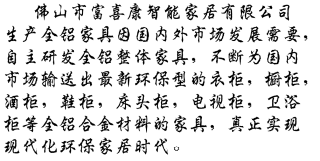 佛山市富喜康智能家居有限公司
生产全铝家具因国内外市场发展需要，
自主研发全铝整体家具，不断为国内
市场输送出最新环保型的衣柜，橱柜，
酒柜，鞋柜，床头柜，电视柜，卫浴
柜等全铝合金材料的家具，真正实现
现代化环保家居时代。